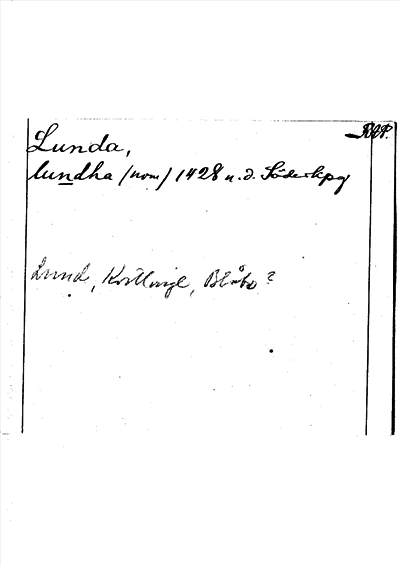 Lunda, RAP.
lundha (nom) 1428 u. d. Söderkpg
Lund, Kvillinge, Bråbo?